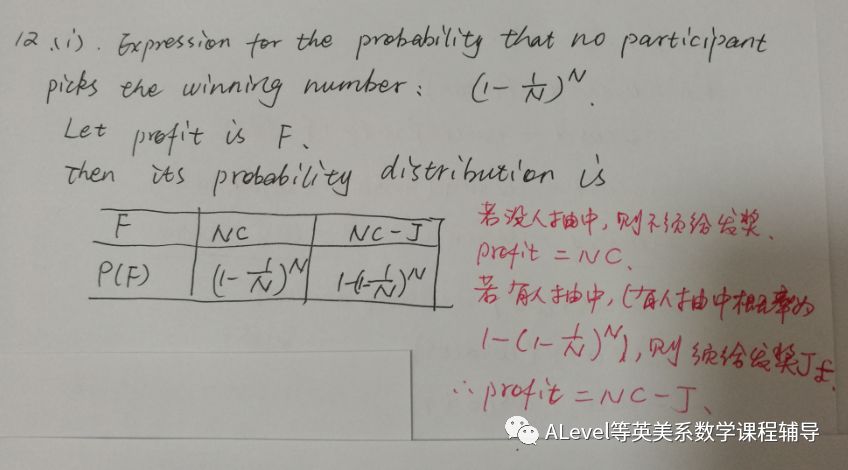 12.(i). Expression for the probability that no participant
picks the winning number: (1-1/N)^N.
Let profit is F.
Then its probability distribution is
F NC NC-J
P(F) (1-1/N)^N 1-(1-1/N)^N
若没人抽中,则不须给发奖.
profit = NC.
若有人抽中,(有人抽中概率为
1-(1-1/N)^N),则须给发奖J£.
∴ profit = NC-J.
ALevel等英美系数学课程辅导